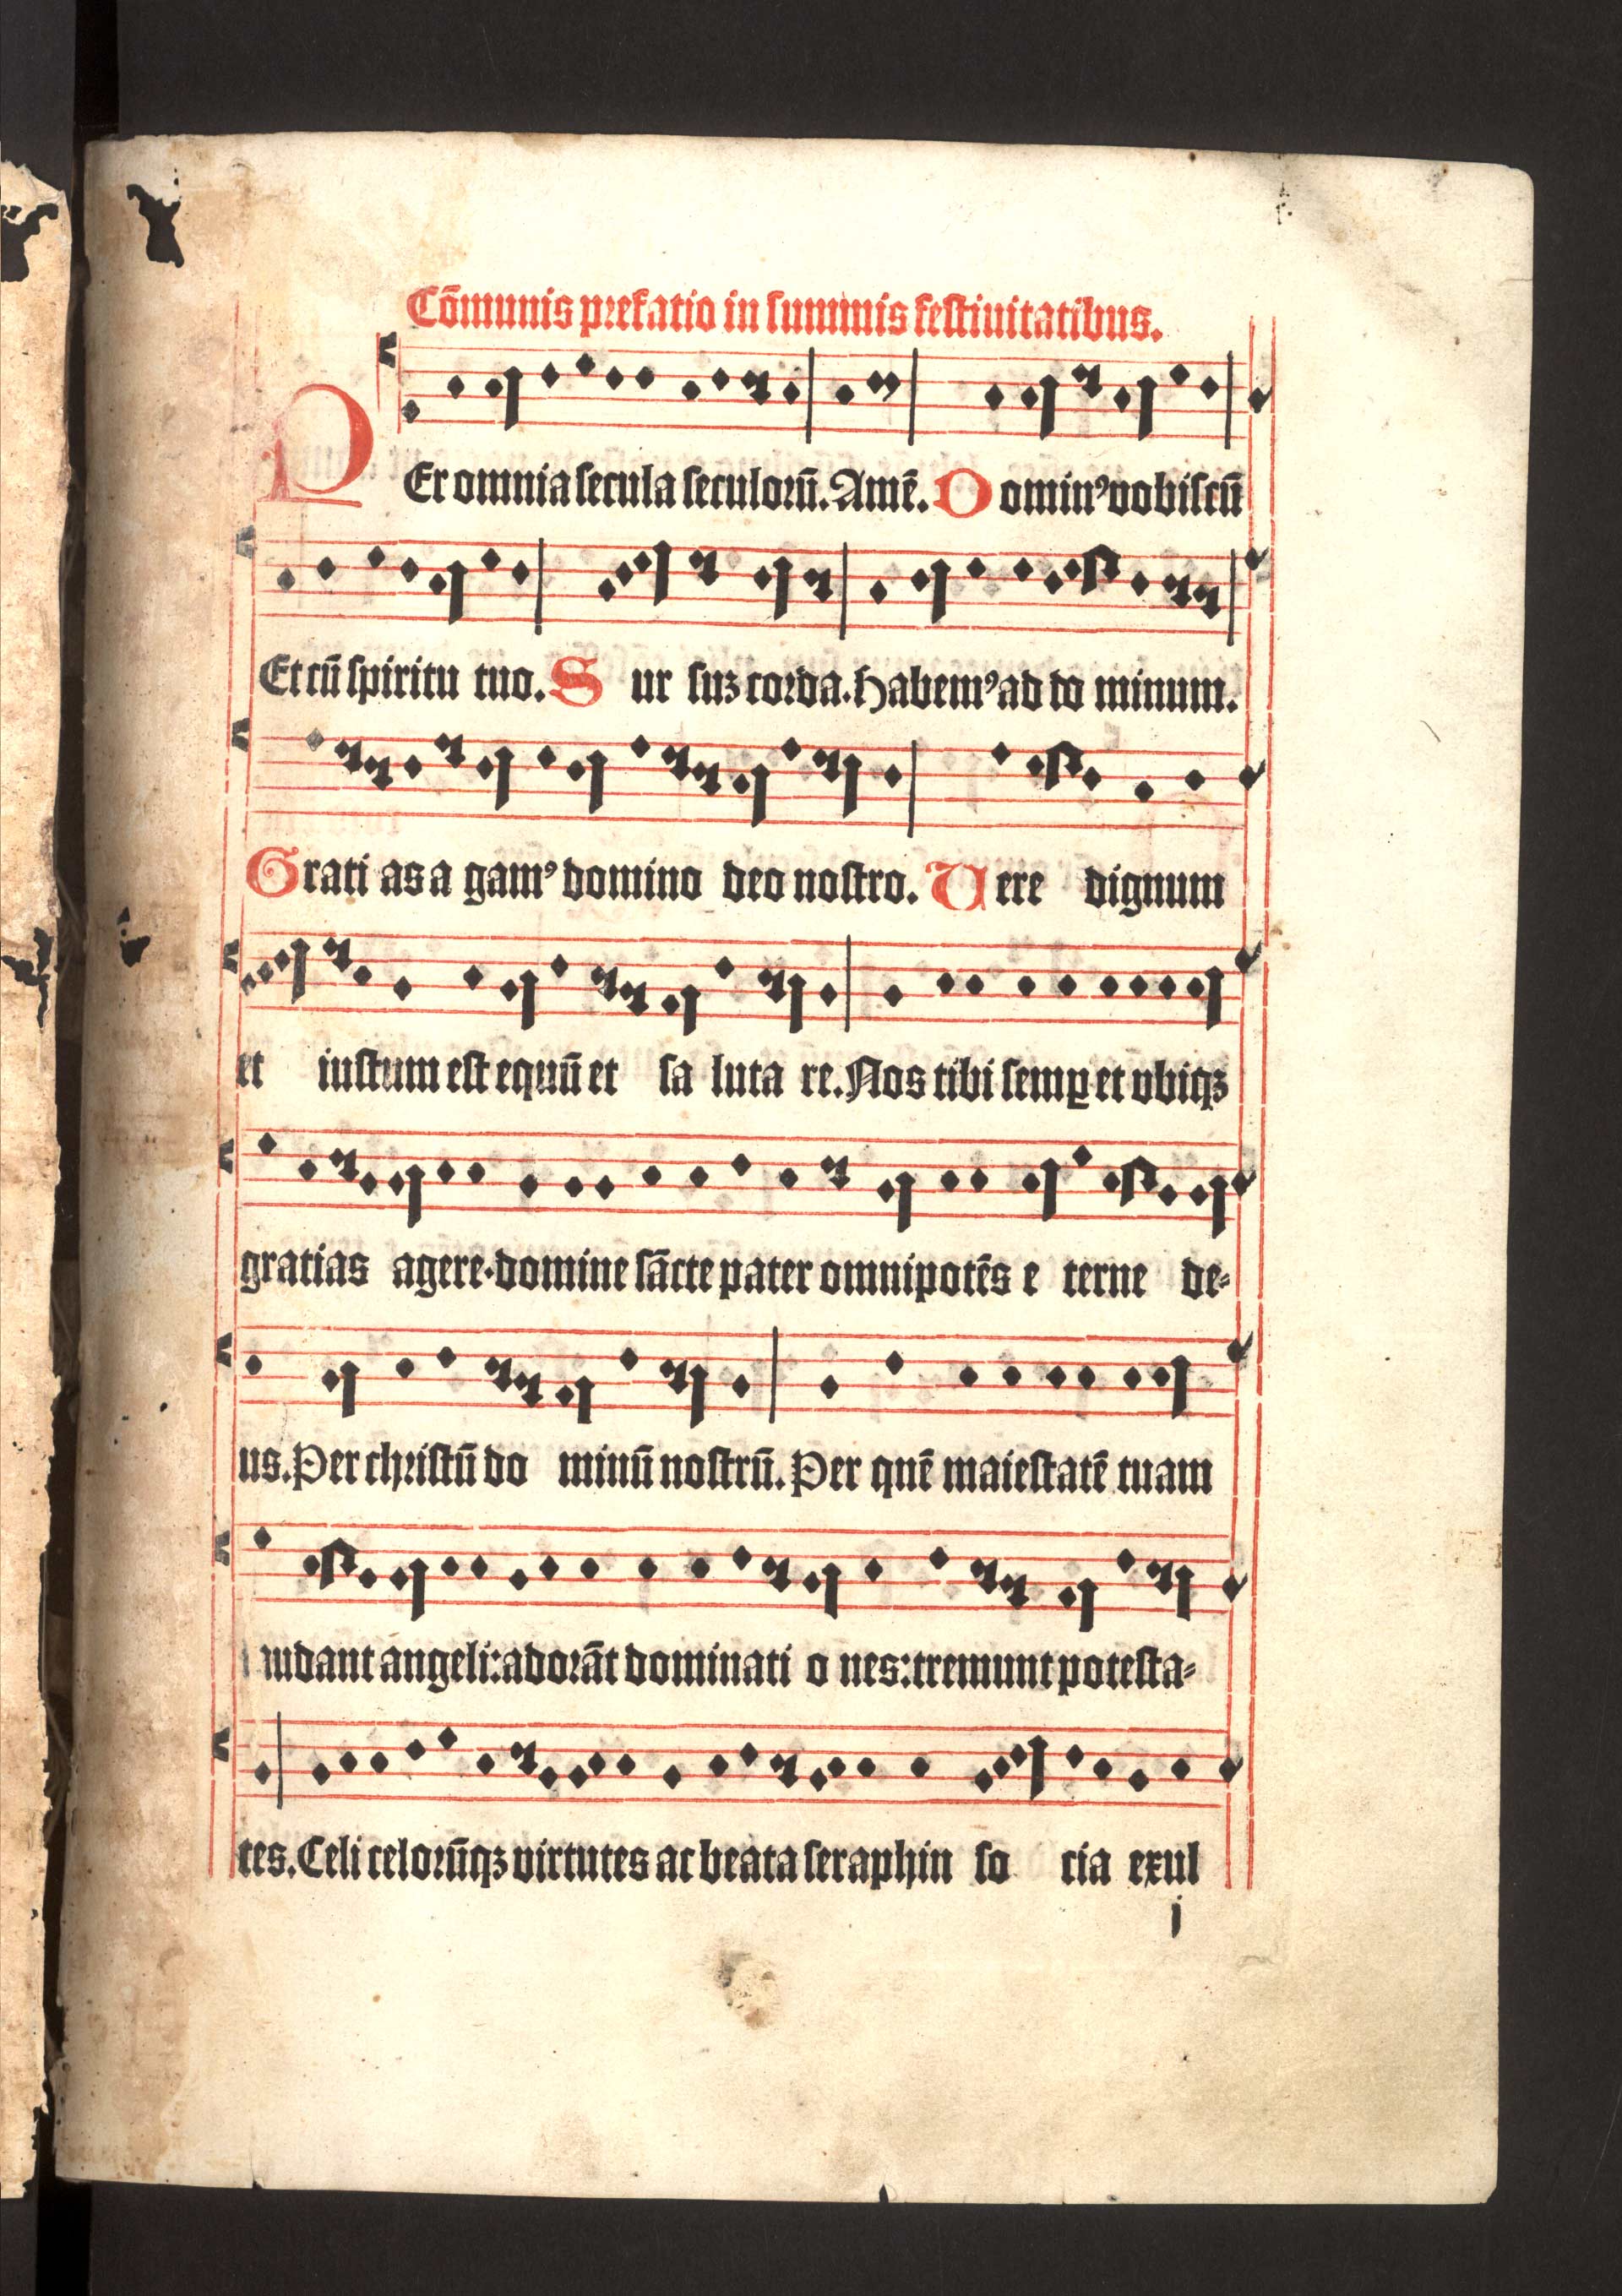 Cōmunis prefatio in summis festiuitatibus.
PEr omnia secula seculorū. Amē. Dominꝰ vobiscū
Et cū spiritu tuo. Sur suꝫ corda. Habemꝰ ad do minum.
Grati as a gamꝰ domino deo nostro. Uere dignum
et iustum est equū et sa luta re. Nos tibi semꝑ et vbiqꝫ
gratias agere·domine sācte pater omnipotēs e terne de⸗
us. Per christū do minū nostrū. Per quē maiestatē tuam
udant angeli: adorāt dominati o nes: tremunt potesta⸗
tes. Celi celorūqꝫ virtutes ac beata seraphin so cia exul
j